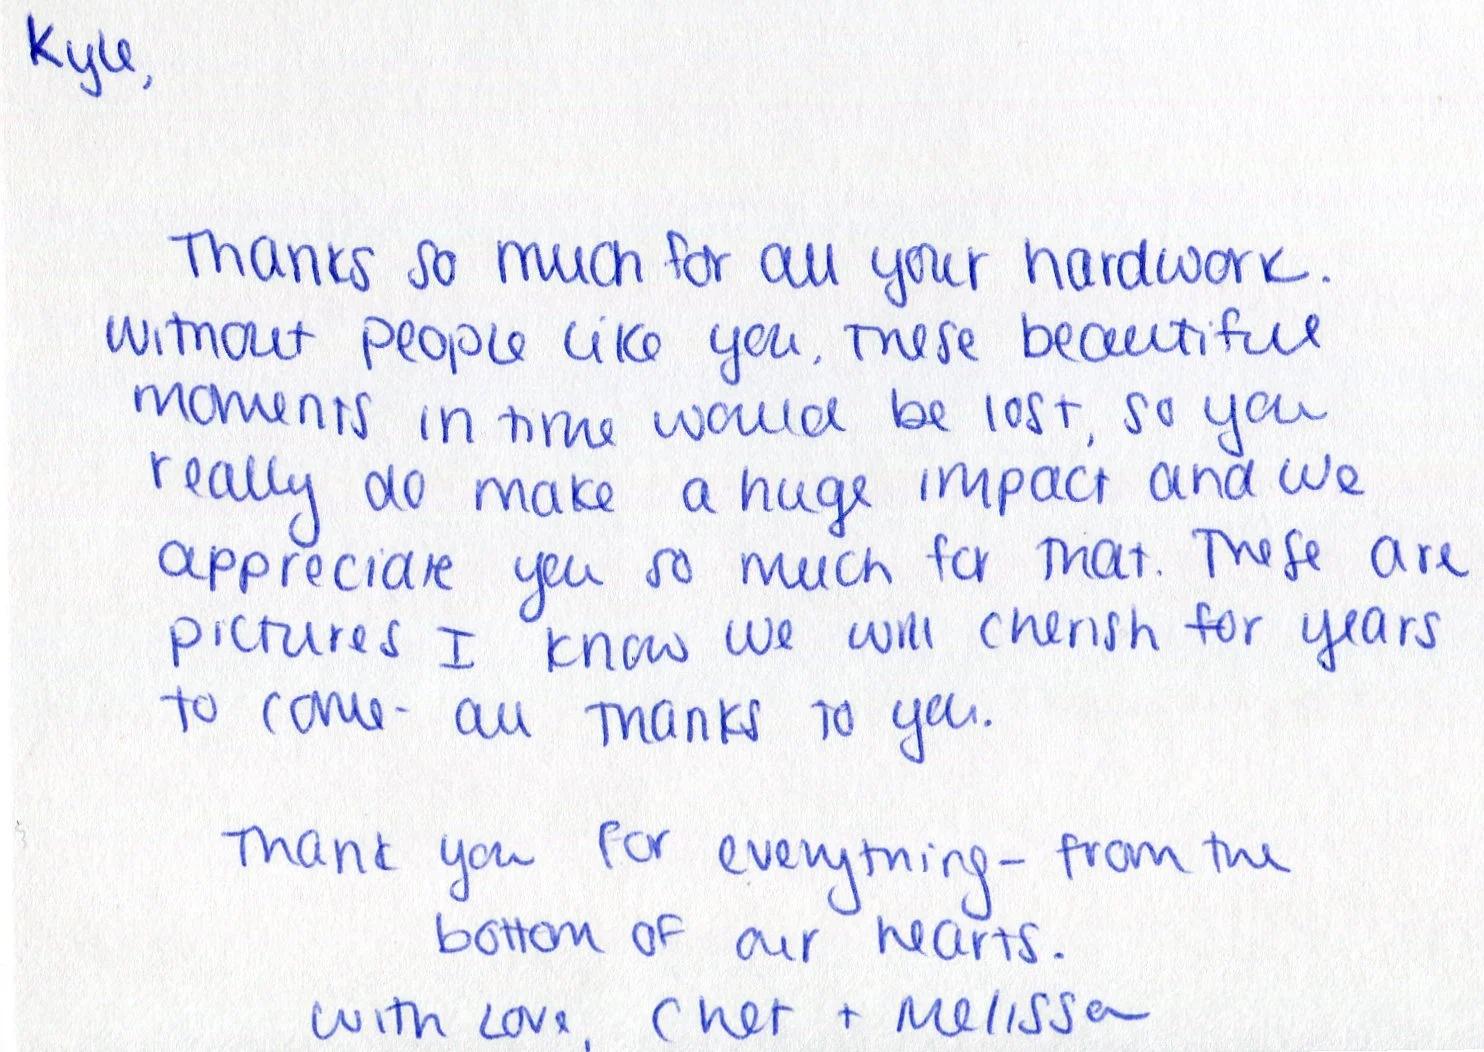 Kyle,
Thanks so much for all your hardwork.
Without people like you, these beautiful
moments in time would be lost, so you
really do make a huge impact and we
appreciate you so much for that. These are
pictures I know we will cherish for years
to come- all thanks to you.
Thank you for everything- from the
bottom of our hearts.
With Love, Chet + Melissa